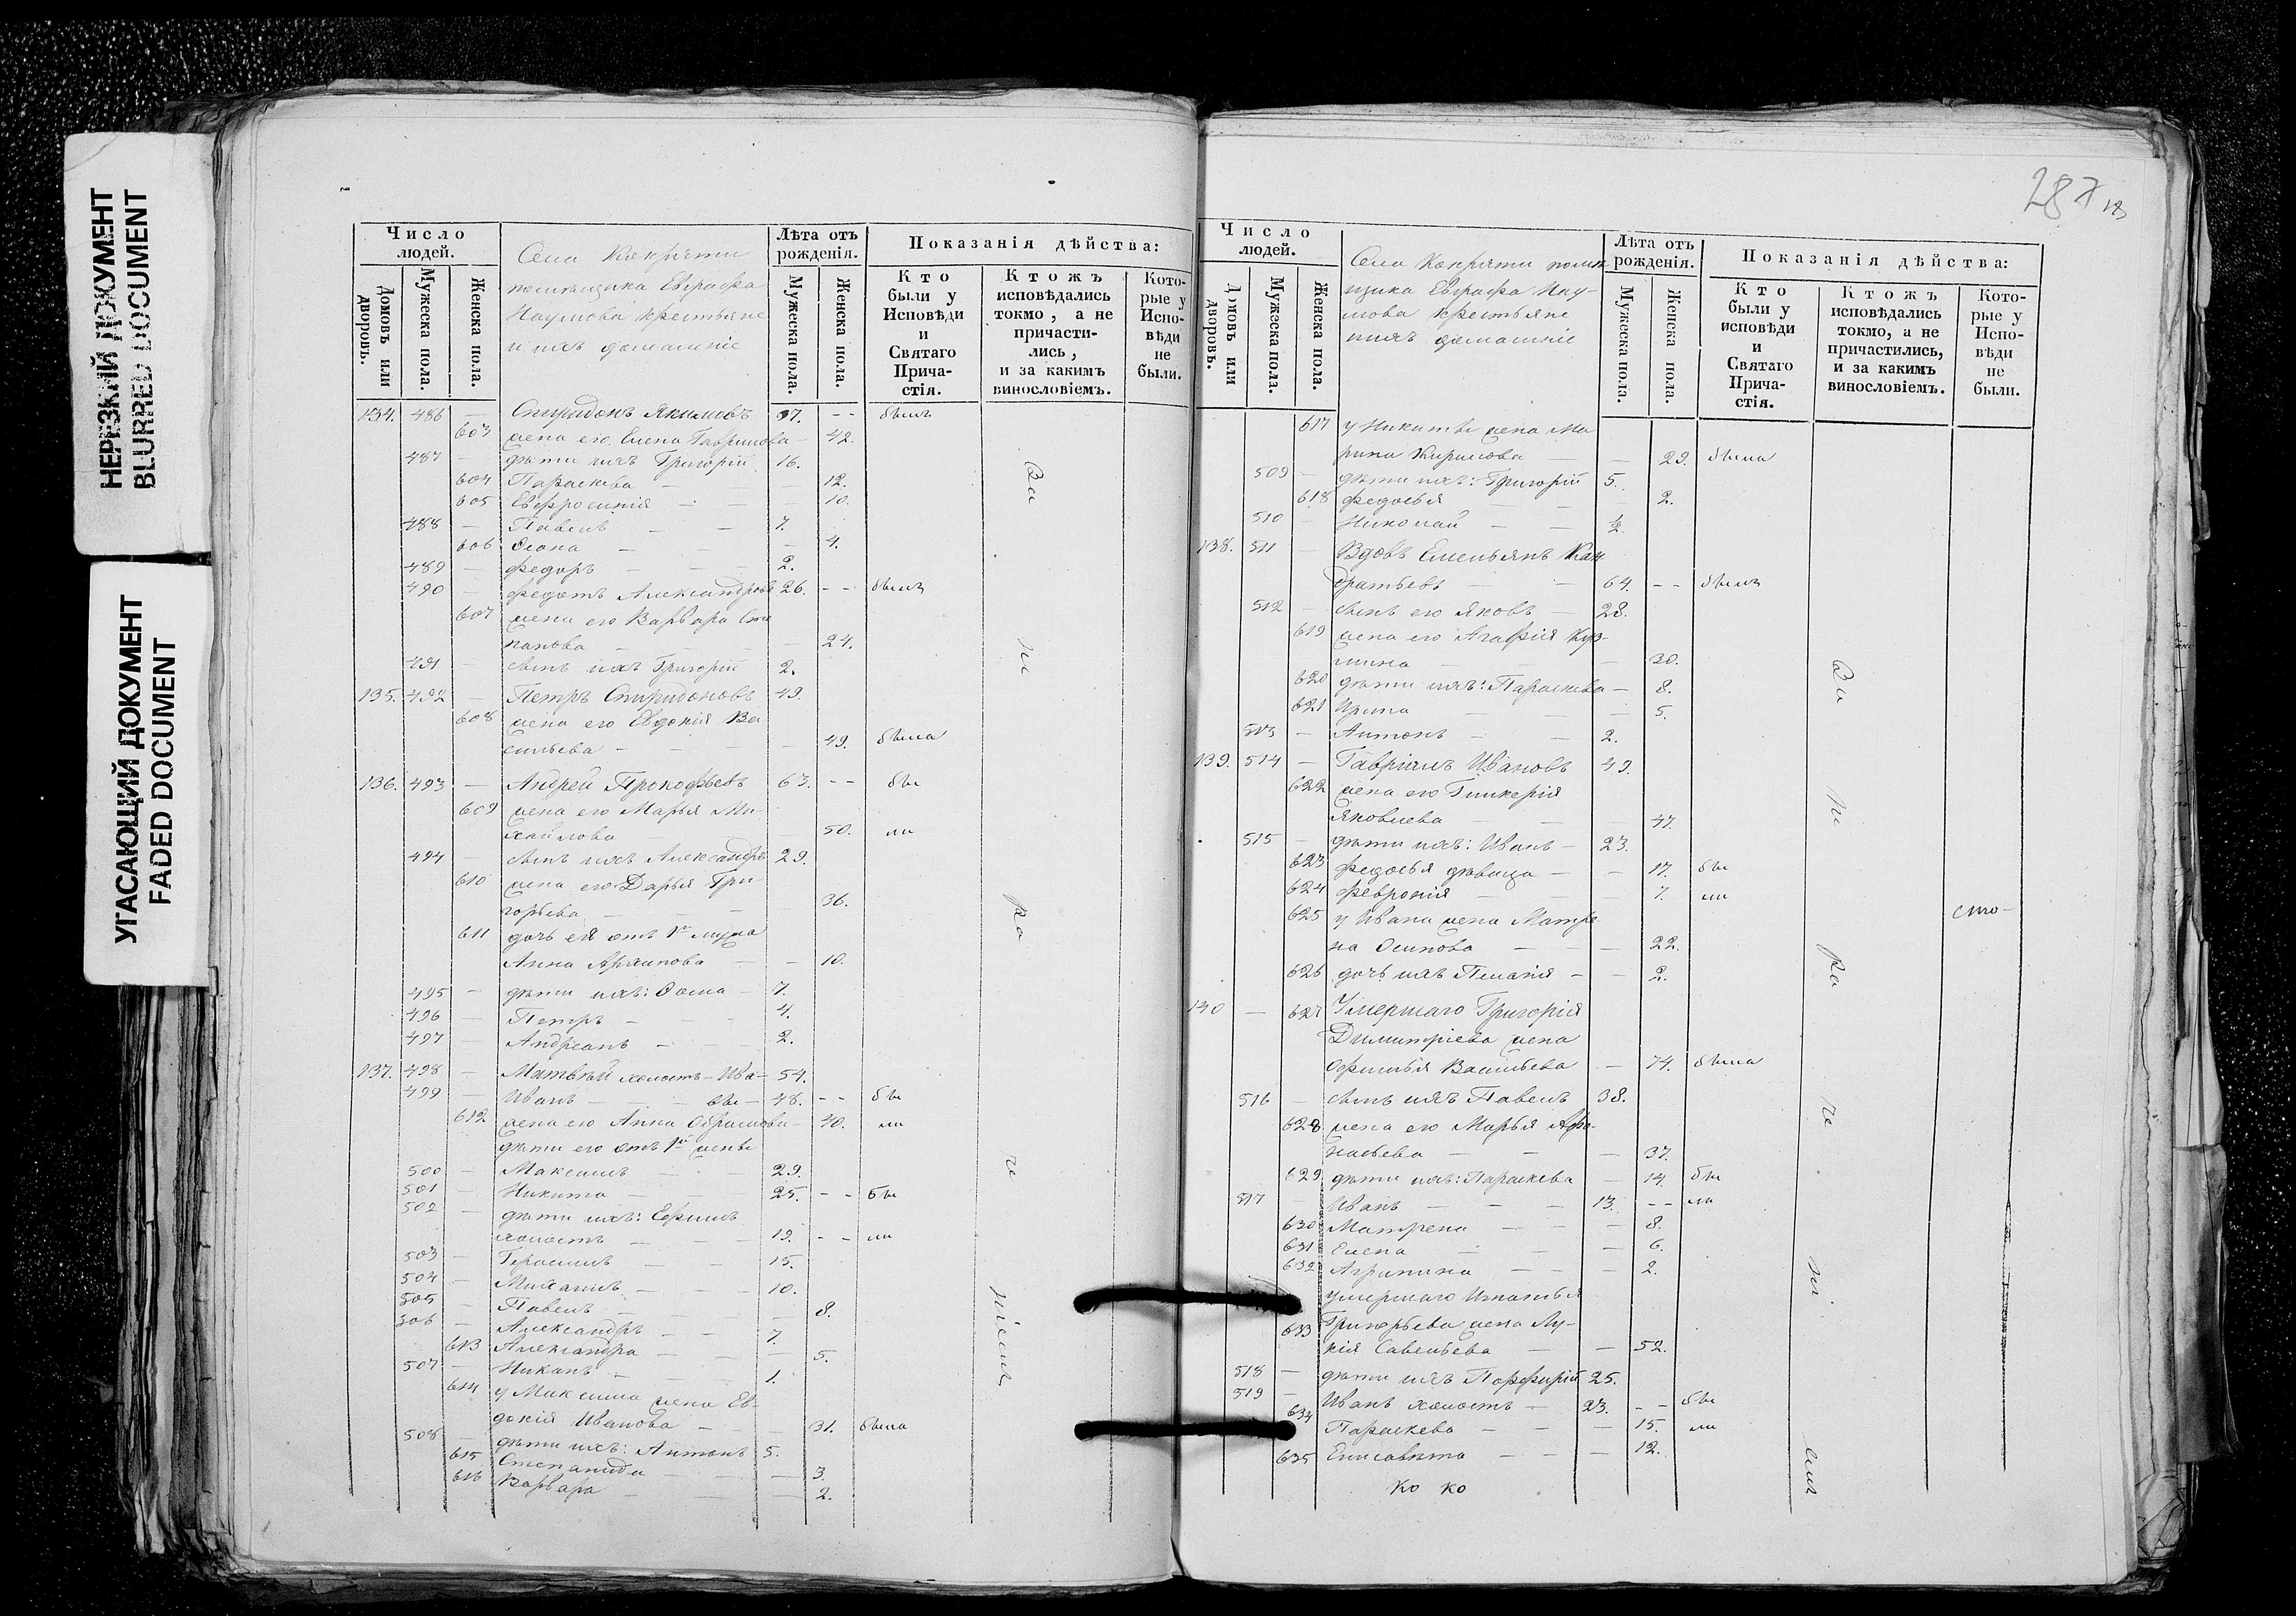 НЕРЕЗКИЙ ДОКУМЕНТ
BLURRED DOCUMENT
УГАСАЮЩИЙ ДОКУМЕНТ
FADED DOCUMENT
Число людей.
Домовъ или дворовъ.
Мужеска пола.
Женска пола.
Села Кокряти
помѣщика Евграфа
Наумова крестьяне
и ихъ домашніе
Лѣта отъ рожденія.
Мужеска пола.
Женска пола.
Показанія дѣйства:
Кто были у Исповѣди и Святаго Причастія.
Ктожъ исповѣдались токмо, а не причастились, и за какимъ винословіемъ.
Которые у Исповѣди не были.
134. 486 — Спиридонъ Якимовъ 07. -- былъ
603 жена его Елена Гаврилова — 42.
487 — дѣти ихъ Григорій 16.
604 Параскева — — 12.
605 Евфросинія — — 10.
488 — Павелъ — — 7.
606 — — — 4.
489 — Федоръ — — 2.
490 — Федотъ Александровъ 26. -- былъ
607 жена его Варвара Сте
панова — — — 24.
491 — сынъ ихъ Григорій 2.
135. 492 — Петръ Спиридоновъ 49.
608 жена его Евдокія Ва
сильева — — — 49. была
136. 493 — Андрей Прокофьевъ 63. -- бы
609 жена его Марья Ми-
хайлова — 50. ли
494 — сынъ ихъ Александръ 29.
610 жена его Дарья Гри-
горьева — — 36.
611 дочь ея отъ 1го мужа
Анна Архипова — — 10.
495 — дѣти ихъ: Фома — 7.
496 — Петръ — 4.
497 — Андреанъ — — 2.
137. 498 — Матвѣй холостъ — Ива- 54.
499 — Иванъ — — — вы — 48. -- бы
612 жена его Анна Ефимова — 40. ли
дѣти его отъ 1й жены
500 — Максимъ — — 29.
501 — Никита — — 25. -- бы
502 — дѣти ихъ: Ефимъ
холостъ — — — 19. -- ли
503 — Герасимъ — — 15.
504 — Михаилъ — — 10.
505 — Павелъ — — 8.
506 — Александръ — — 7.
613 Александра — — — 5.
507 — — — 1.
614 у Максима жена Ев-
докія Иванова — — 31. была
508 — дѣти ихъ: Антонъ 5.
615 Степанида — — 3.
616 Варвара — — 2.
За
по
ра
че
ніемъ
287
Число людей.
Домовъ или дворовъ.
Мужеска пола.
Женска пола.
Села Кокряти помѣ
щика Евграфа Нау-
мова крестьяне
и ихъ домашніе
Лѣта отъ рожденія.
Мужеска пола.
Женска пола.
Показанія дѣйства:
Кто были у исповѣди и Святаго Причастія.
Ктожъ исповѣдались токмо, а не причастились, и за какимъ винословіемъ.
Которые у Исповѣди не были.
617 у Никиты жена Ма
рина Кирилова — — 29. была
509 — дѣти ихъ: Григорій 5.
618 Федосья — — 2.
510 — Николай — — ½
138. 511 — Вдовъ Емельянъ Кон
дратьевъ — — 64. -- былъ
512 — сынъ его Яковъ — 28.
619 жена его Агафія Куз-
мина — — — 30.
620 дѣти ихъ: Параскева — 8.
621 Ирина — — — 5.
513 — Антонъ — — 2.
139. 514 — Гавріилъ Ивановъ 49.
622 жена его Гликерія
Яковлева — — — 47.
515 — дѣти ихъ: Иванъ — 23.
623 Федосья дѣвица — — 17. бы
624 Февронія — — — 7. ли
625 у Ивана жена Матре
на Осипова — — — 22.
626 дочь ихъ Пелагія — — 2.
140 — 627 Умершаго Григорія
Димитріева жена
Офимья Васильева — — 74. была
516 — сынъ ихъ Павелъ 38.
628 жена его Марья Афа-
насьева — — — 37.
629 дѣти ихъ: Параскева — 14. бы
517 — Иванъ — — — 13. -- ли
630 Матрена — — — 8.
631 Елена — — — 6.
632 Агрипина — — — 2.
умершаго Игнатья
633 Григорьева жена Лу-
кія Савельева — — 52.
518 — дѣти ихъ Порфирій 25.
519 — Иванъ холостъ — 23. -- бы
634 Параскева — — — 15. ли
635 Елисавета — — — 12.
За
по
ра
че
ні
емъ